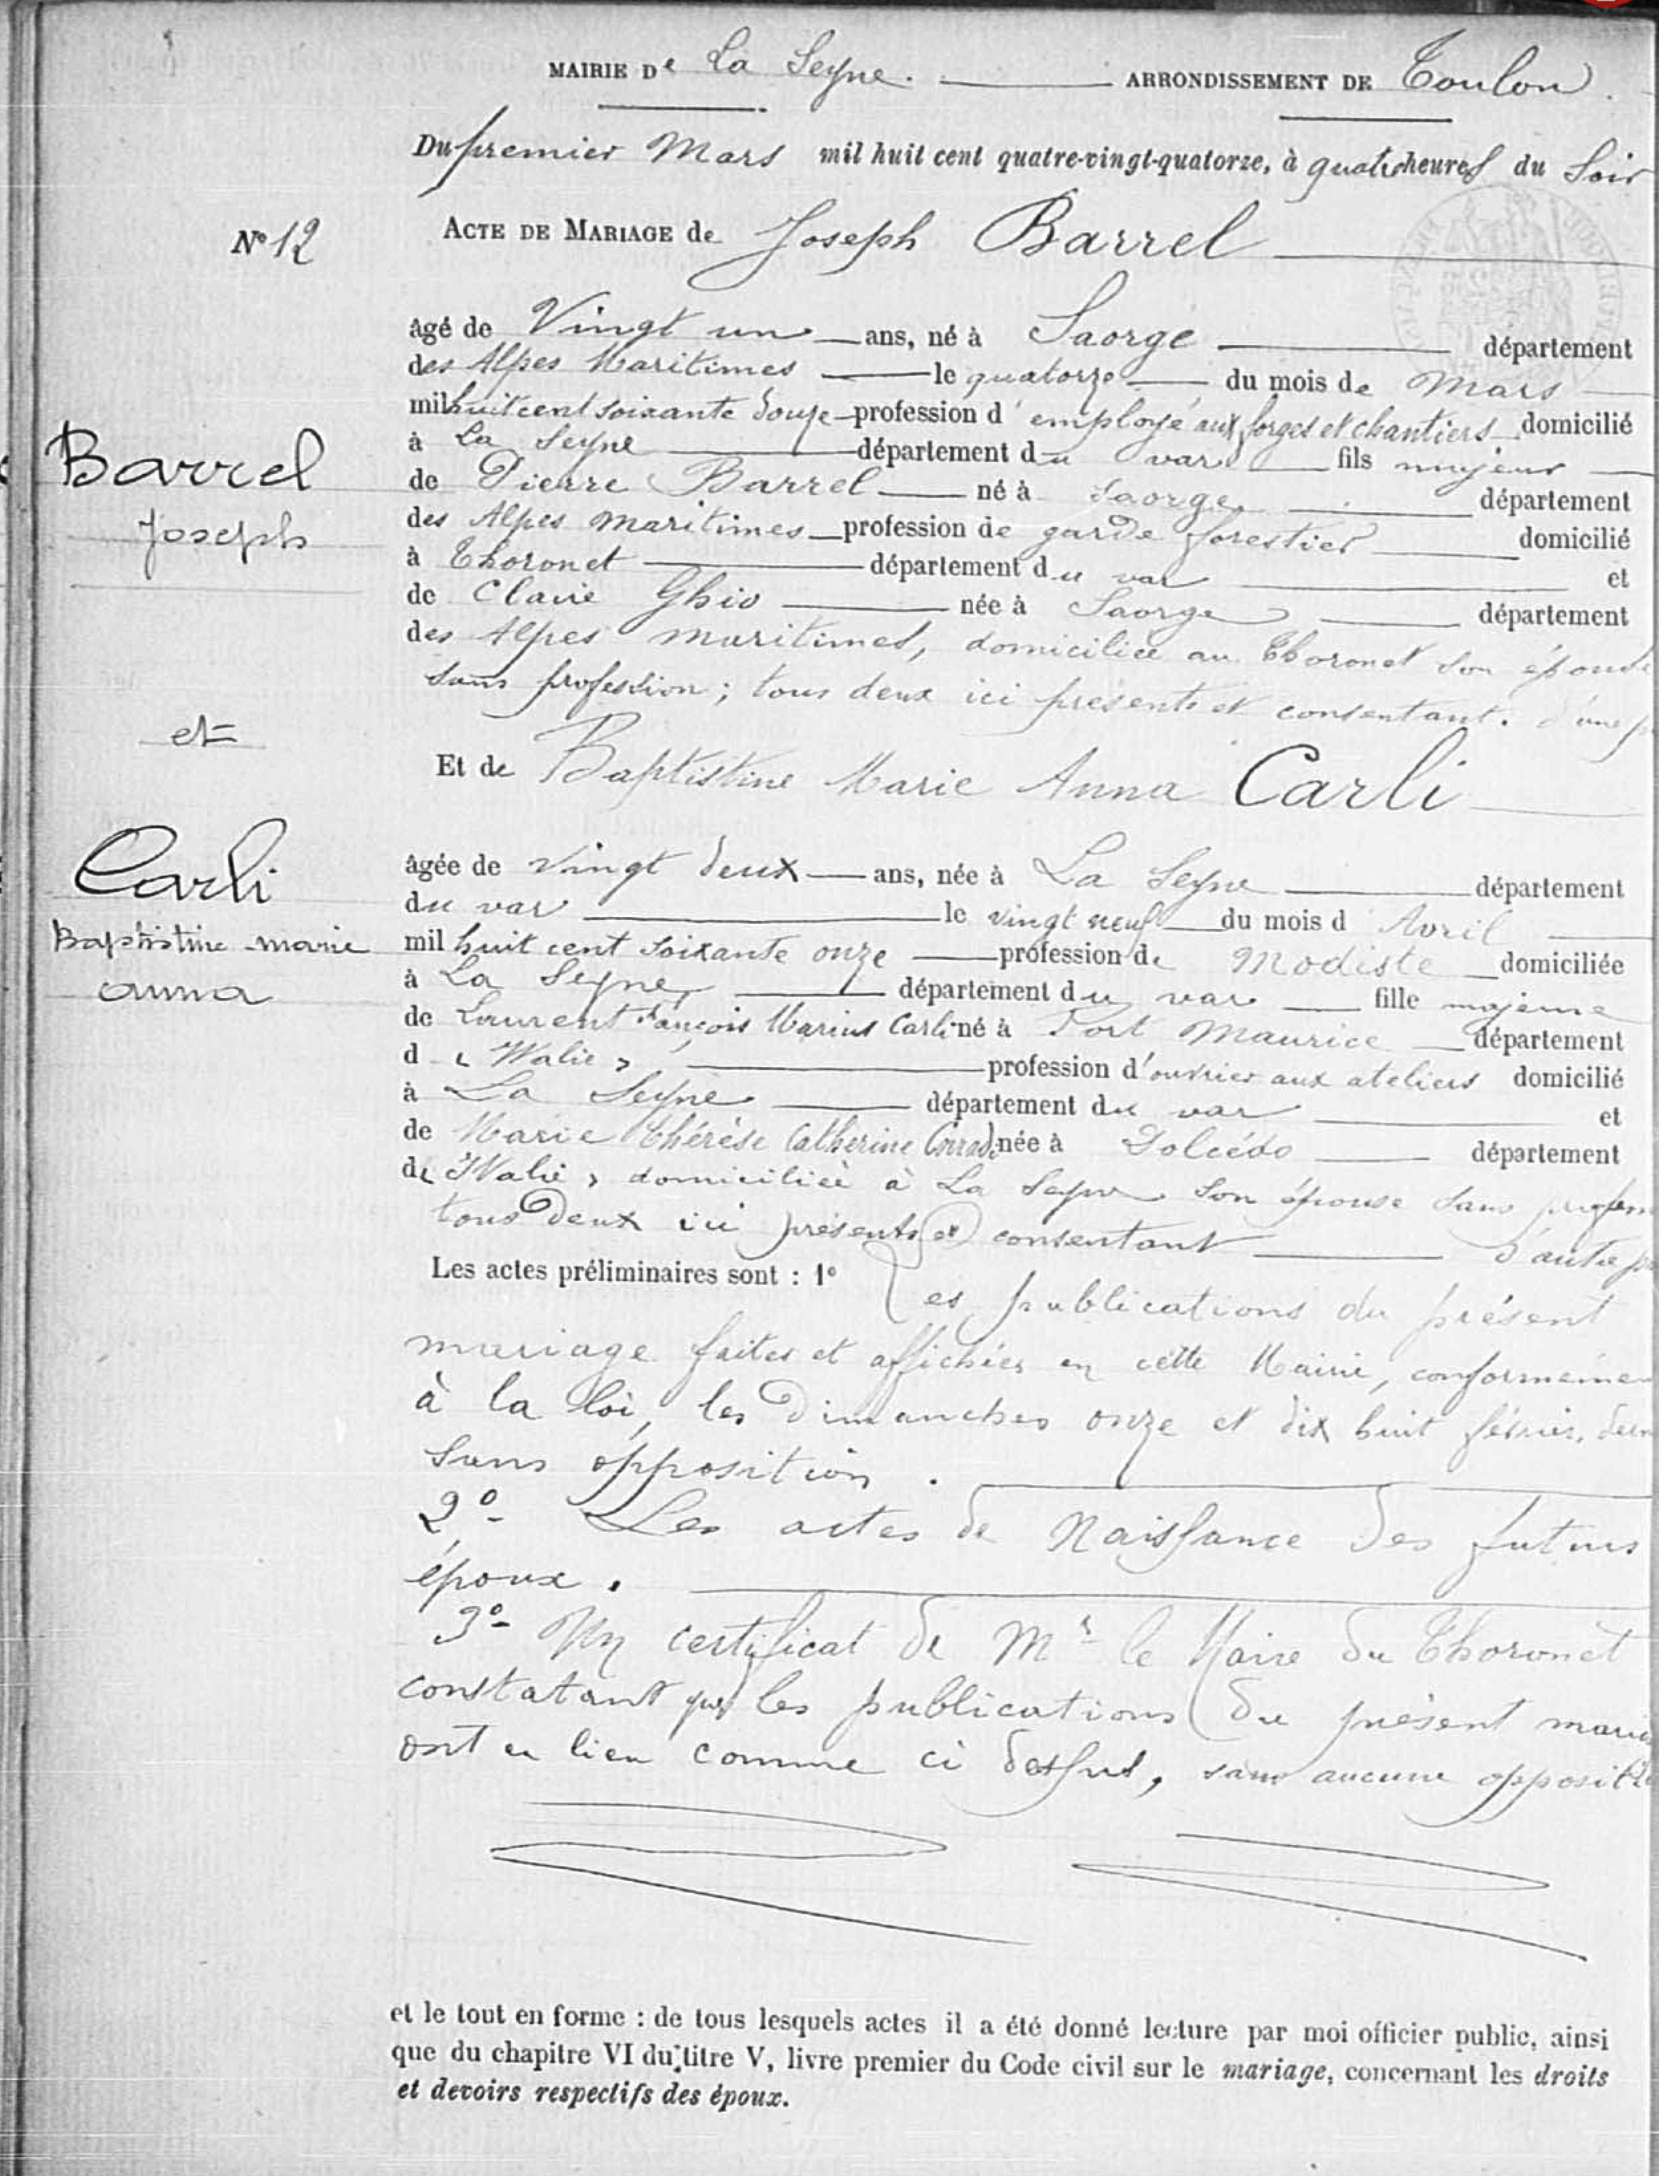 MAIRIE De La Seyne. ARRONDISSEMENT DE Toulon.
Du premier Mars mil huit cent quatre-vingt-quatorze, à quatre heures du Soir
N° 12
ACTE DE MARIAGE de Joseph Barrel
âgé de Vingt un ans, né à Saorge département
des Alpes Maritimes le quatorze du mois de Mars
mil huit cent soixante douze profession d'employé aux forges et chantiers domicilié
à La Seyne département du var fils majeur
Barrel
Joseph
de Pierre Barrel né à Saorge département
des Alpes maritimes profession de garde forestier domicilié
à Thoronet département du var et
de Claire Ghio née à Saorge département
des Alpes maritimes, domiciliée au Thoronet son épouse
sans profession; tous deux ici présents et consentant. d'une p
et
Et de Baptistine Marie Anna Carli
Carli
Baptistine marie
anna
âgée de vingt deux ans, née à La Seyne département
du var le vingt neuf du mois d'Avril
mil huit cent soixante onze profession de Modiste domiciliée
à La Seyne, département du var fille majeure
de Laurent François Marius Carli né à Port Maurice département
d "Italie" profession d'ouvrier aux ateliers domicilié
à La Seyne département du var et
de Marie Thérèse Catherine née à Dolcédo département
d "Italie" domiciliée à La Seyne son épouse sans profess
tous deux ici présents et consentant d'autre p
Les actes préliminaires sont : 1° Les publications du présent
mariage faites et affichées en cette Mairie, conformémen
à la loi, les Dimanches onze et dix huit février, dern
sans opposition.
2°- Les actes de Naissance des futurs
époux.
3°- Un certificat de Mr le Maire du Thoronet
constatant que les publications du présent maria
ont eu lieu comme ci dessus, sans aucune oppositi
et le tout en forme : de tous lesquels actes il a été donné lecture par moi officier public, ainsi
que du chapitre VI du titre V, livre premier du Code civil sur le mariage, concernant les droits
et devoirs respectifs des époux.